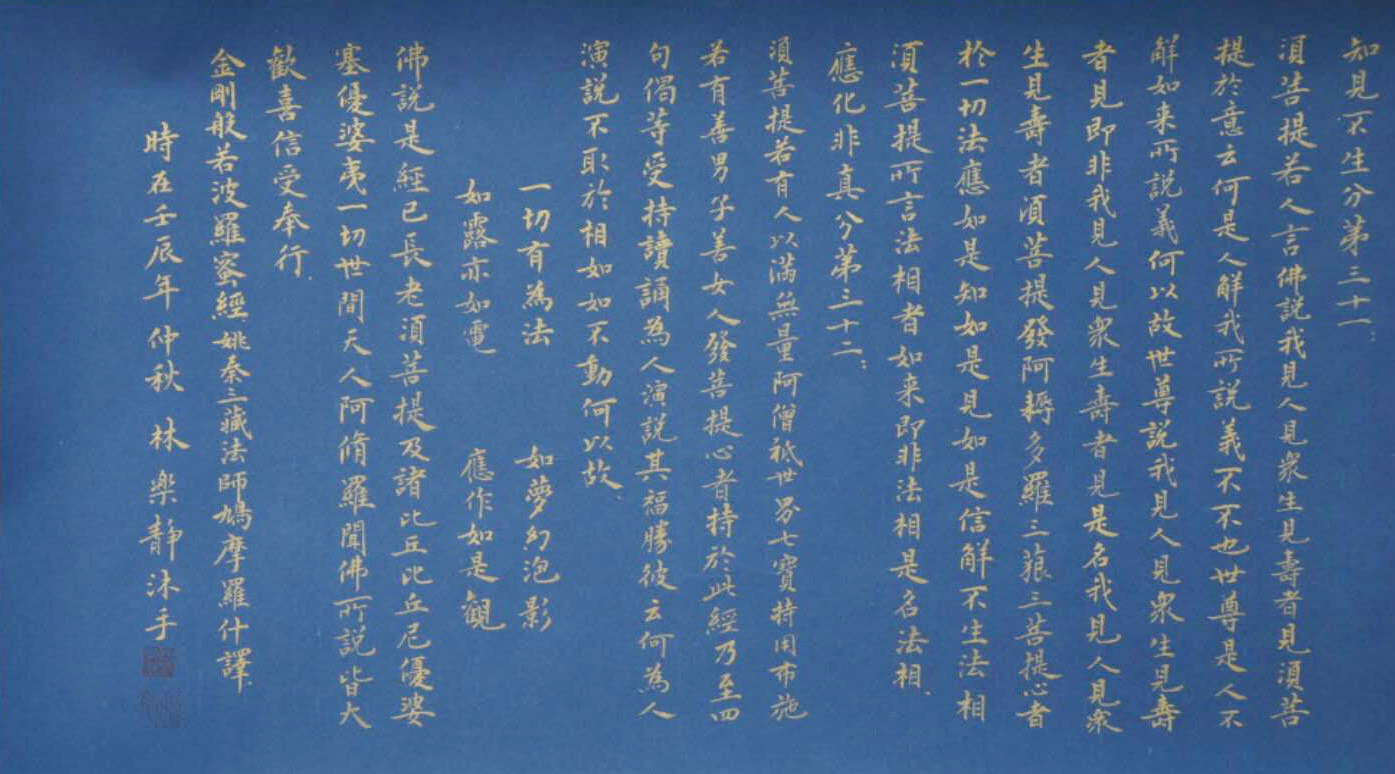 知見不生分第三十一
須菩提若人言佛說我見人見衆生見壽者見須菩
提於意云何是人解我所說義不不也世尊是人不
解如来所說義何以故世尊說我見人見衆生見壽
者見即非我見人見衆生壽者見是名我見人見衆
生見壽者須菩提發阿耨多羅三藐三菩提心者
於一切法應如是知如是見如是信解不生法相
須菩提所言法相者如来即非法相是名法相
應化非真分第三十二
須菩提若有人以滿無量阿僧祇世界七寶持用布施
若有善男子善女人發菩提心者持於此經乃至四
句偈等受持讀誦為人演說其福勝彼云何為人
演說不取於相如如不動何以故
一切有為法 如夢幻泡影
如露亦如電 應作如是觀
佛說是經已長老須菩提及諸比丘比丘尼優婆
塞優婆夷一切世間天人阿脩羅聞佛所說皆大
歡喜信受奉行
金剛般若波羅蜜經姚秦三藏法師鳩摩羅什譯
時在壬辰年仲秋 林樂靜沐手